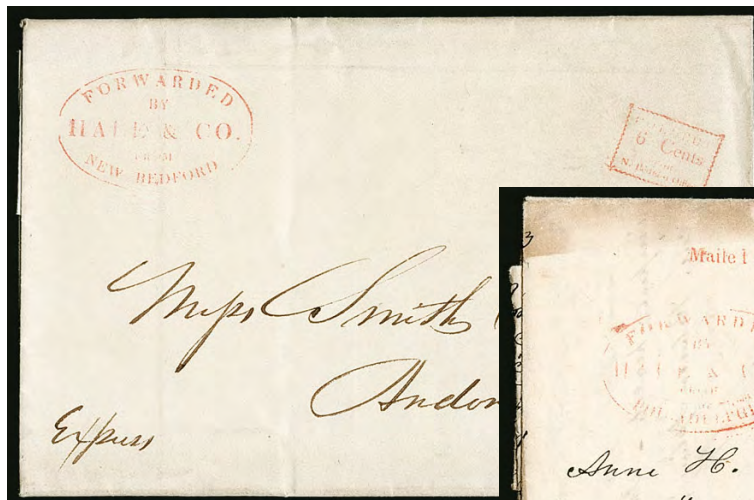 FORWARDED
BY
HALE & CO.
FROM
NEW BEDFORD
6 Cents
Miss Smith
Andov
Express
3
Maile
FORWARDE
BY
HALE & C
FROM
PHILADELPHI
Anne H.